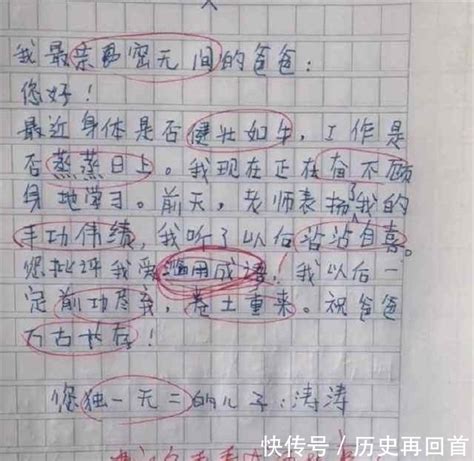 我最亲密无间的爸爸：
您好！
最近身体是否健壮如牛，工作是
否蒸蒸日上。我现在正在奋不顾
身地学习。前天，老师表扬了我的
丰功伟绩，我听了以后沾沾自喜。
您批评我爱滥用成语，我以后一
定前功尽弃，卷土重来。祝爸爸
万古长存！
您独一无二的儿子：涛涛
快传号 / 历史再回首